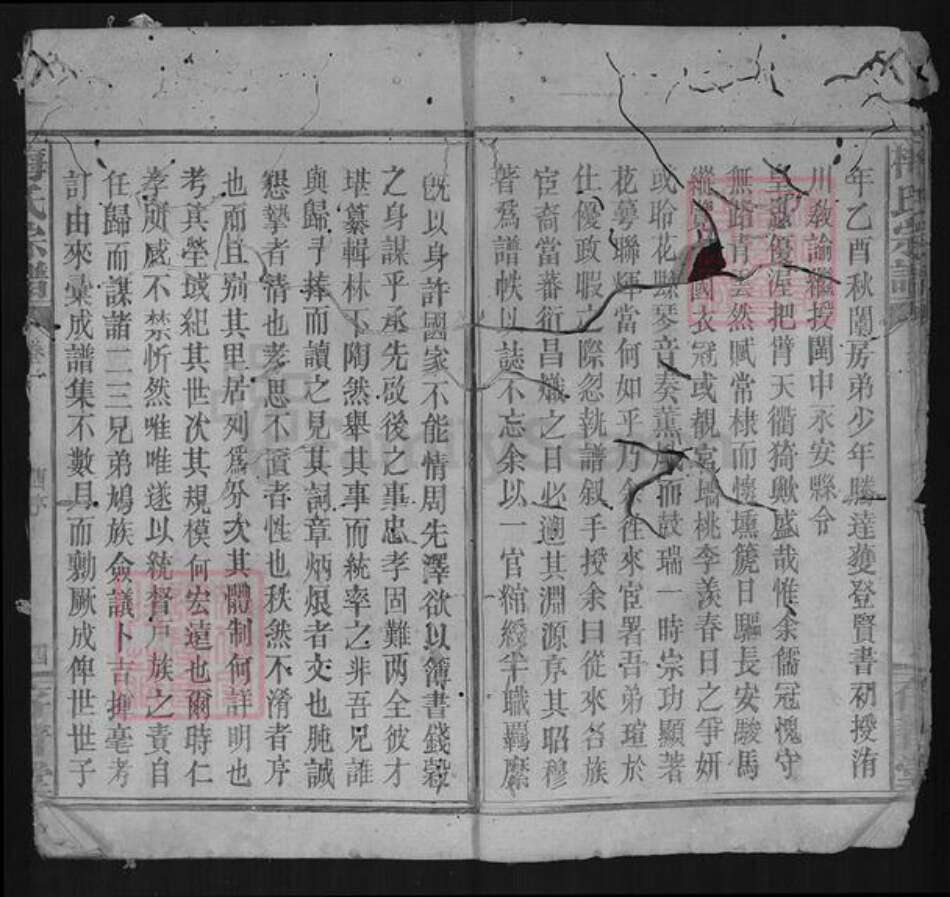 年乙酉秋闈房弟少年騰達獲登賢書初授洧
川敎諭繼授閩中永安縣令
皇恩優渥把臂天衢猗歟盛哉惟余儒冠愧守
無路青雲然賦常棣而懷壎篪日驅長安駿馬
國衣冠或覩宮墻桃李羨春日之爭妍
或聆花縣琴音奏薰風而鼓瑞一時宗功顯著
花萼聯輝當何如乎乃余往來宦署吾弟瑄於
仕優政暇之際忽執譜叙手授余曰從來名族
宦裔當蕃衍昌熾之日必遡其淵源序其昭穆
著爲譜帙以誌不忘余以一官綰綬半職羈縻
旣以身許國家不能情周先澤欲以簿書錢穀
之身謀乎承先啟後之事忠孝固難兩全彼才
堪纂輯林下陶然舉其事而統率之非吾兄誰
與歸予捧而讀之見其詞章炳烺者文也肫誠
懇摯者情也孝思不匱者性也秩然不淆者序
也而且别其里居列爲分次其體制何詳明也
考其塋域紀其世次其規模何宏遠也爾時仁
孝所感不禁忻然唯唯遂以統督户族之責自
任歸而謀諸二三兄弟鳩族僉議卜吉揮毫考
訂由來彙成譜集不數月而勷厥成俾世世子
梅氏宗譜
卷一
四